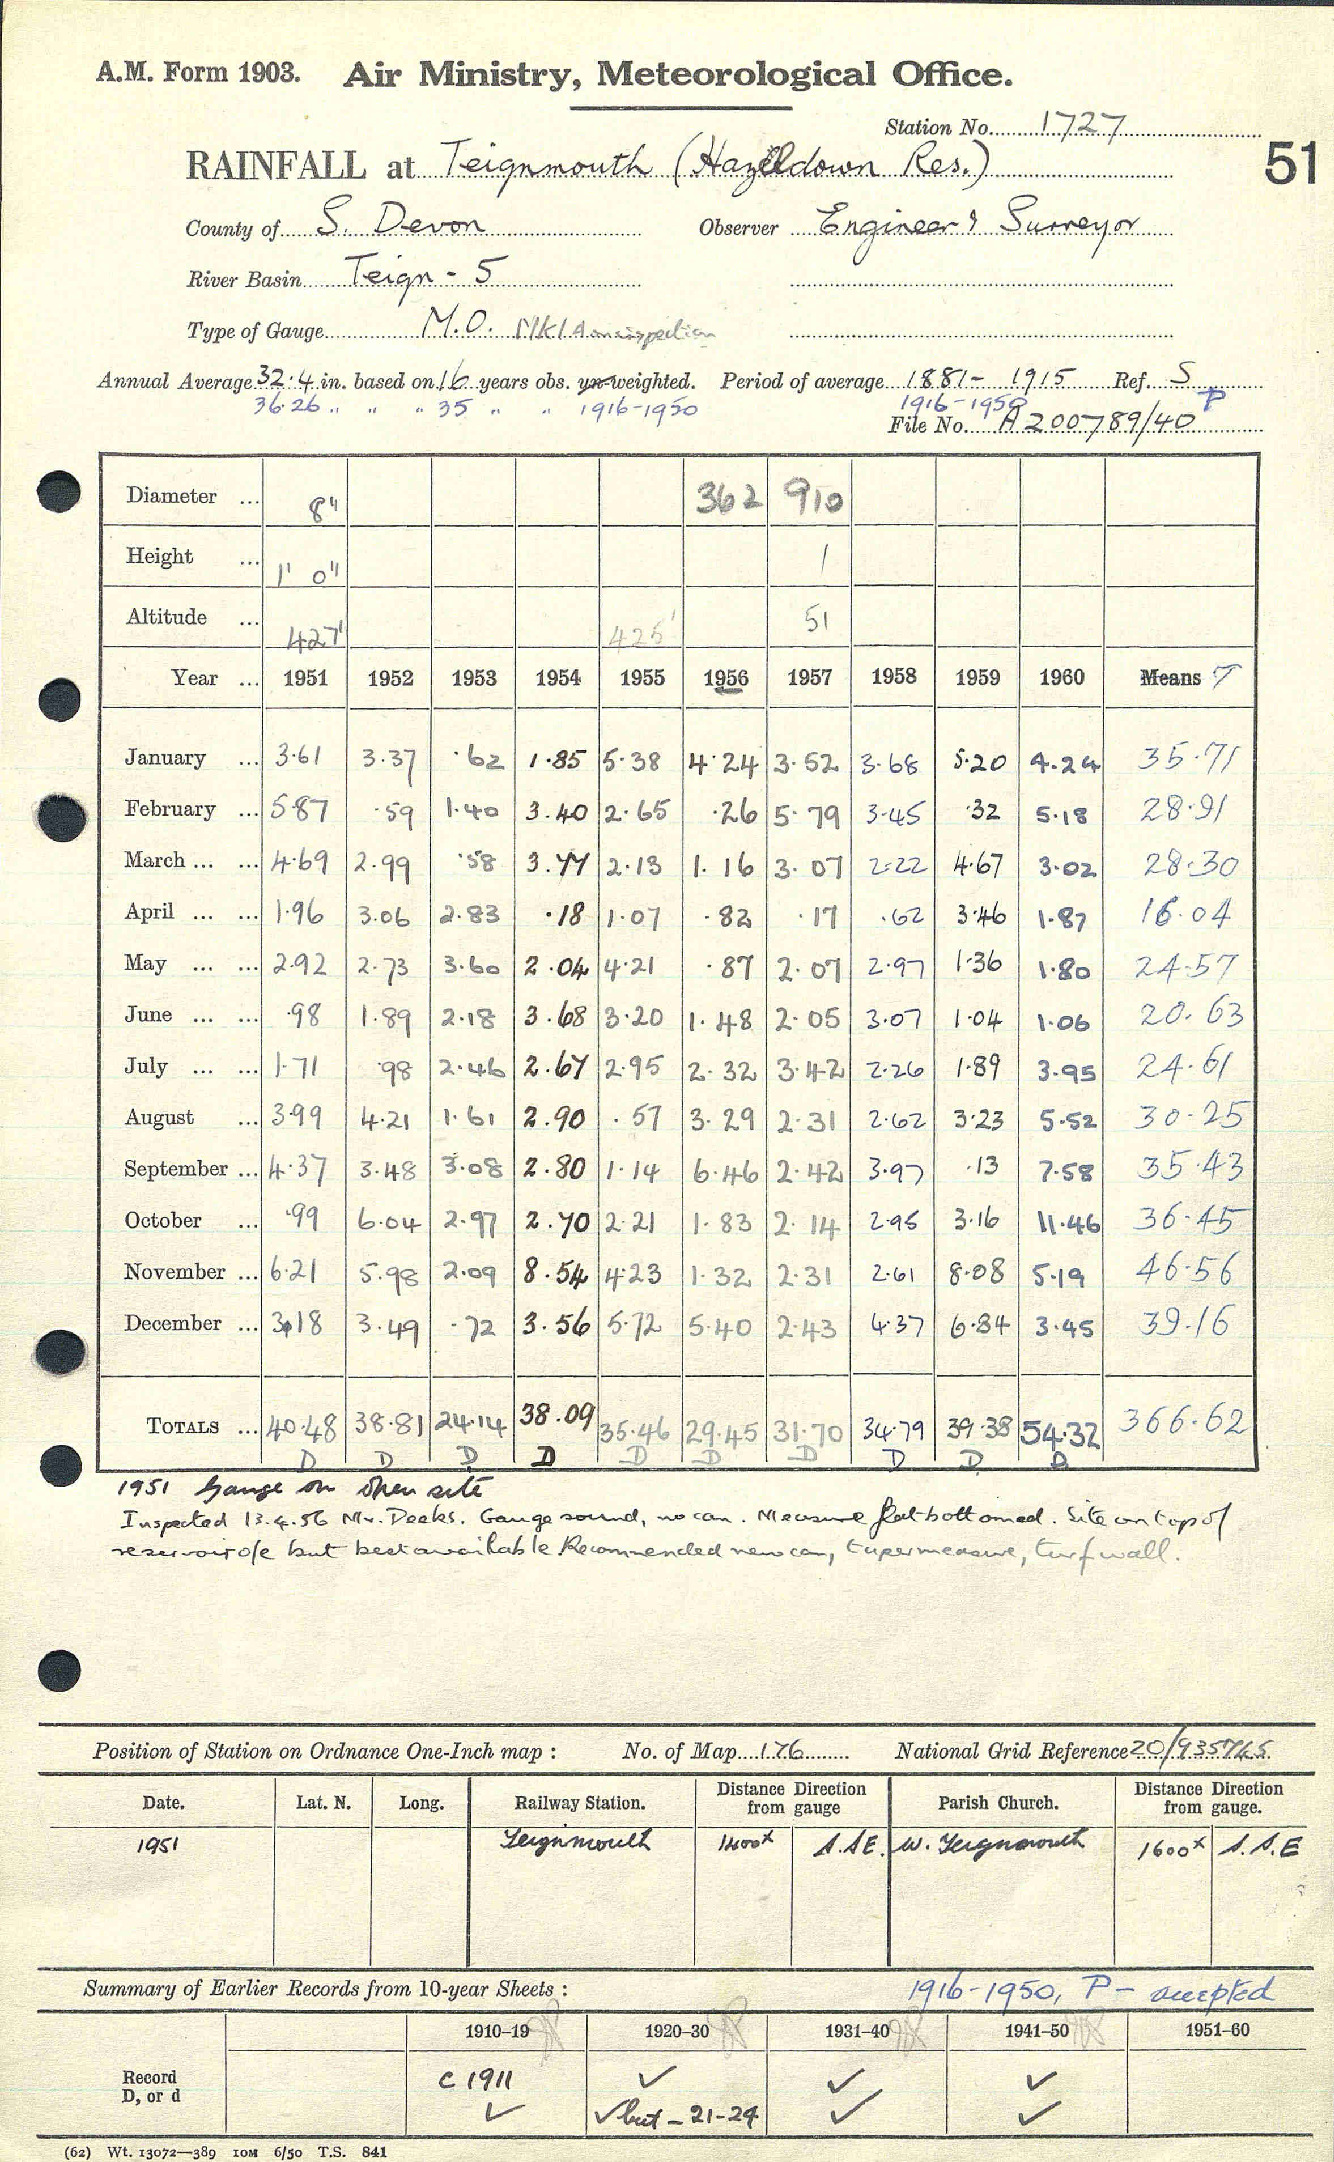 A.M. Form 1903. Air Ministry, Meteorological Office.
Station No. 1727
RAINFALL at Teignmouth (Hazeldown Res.) 51
County of S. Devon Observer Engineer & Surveyor
River Basin Teign - 5
Type of Gauge M.O. MK1A on inspection
Annual Average 32.4 in. based on 16 years obs. un-weighted. Period of average 1881-1915 Ref. S
36.26 " " " 35 " " 1916-1950 1916-1950 P
File No. A200789/40
Diameter ... 8" 362 910
Height ... 1' 0" 1
Altitude ... 427' 425' 51
Year ... 1951 1952 1953 1954 1955 1956 1957 1958 1959 1960 Means T
January ... 3.61 3.37 .62 1.85 5.38 4.24 3.52 3.68 5.20 4.24 35.71
February ... 5.87 .59 1.40 3.40 2.65 .26 5.79 3.45 .32 5.18 28.91
March ... ... 4.69 2.99 .58 3.77 2.13 1.16 3.07 2.22 4.67 3.02 28.30
April ... ... 1.96 3.06 2.83 .18 1.07 .82 .17 .62 3.46 1.87 16.04
May ... ... 2.92 2.73 3.60 2.04 4.21 .87 2.07 2.97 1.36 1.80 24.57
June ... ... .98 1.89 2.18 3.68 3.20 1.48 2.05 3.07 1.04 1.06 20.63
July ... ... 1.71 .98 2.46 2.67 2.95 2.32 3.42 2.26 1.89 3.95 24.61
August ... 3.99 4.21 1.61 2.90 .57 3.29 2.31 2.62 3.23 5.52 30.25
September ... 4.37 3.48 3.08 2.80 1.14 6.46 2.42 3.97 .13 7.58 35.43
October ... .99 6.04 2.97 2.70 2.21 1.83 2.14 2.95 3.16 11.46 36.45
November ... 6.21 5.98 2.09 8.54 4.23 1.32 2.31 2.61 8.08 5.19 46.56
December ... 3.18 3.49 .72 3.56 5.72 5.40 2.43 4.37 6.84 3.45 39.16
TOTALS ... 40.48 38.81 24.14 38.09 35.46 29.45 31.70 34.79 39.38 54.32 366.62
D D D D D D D D D D
1951 Gauge on open site
Inspected 13.4.56 Mr. Deeks. Gauge sound, no can. Measure flat bottomed. Site on top of
reservoir o/e but best available. Recommended new can, taper measure, turf wall.
Position of Station on Ordnance One-Inch map : No. of Map 176 National Grid Reference 20/935745
Date. Lat. N. Long. Railway Station. Distance Direction from gauge Parish Church. Distance Direction from gauge.
1951 Teignmouth 1400x S.S.E. W. Teignmouth 1600x S.S.E
Summary of Earlier Records from 10-year Sheets : 1916-1950, P - accepted
1910-19 1920-30 1931-40 1941-50 1951-60
Record c 1911 ✓ ✓ ✓
D, or d ✓ ✓ but - 21-24 ✓ ✓
(62) Wt. 13072—389 10M 6/50 T.S. 841